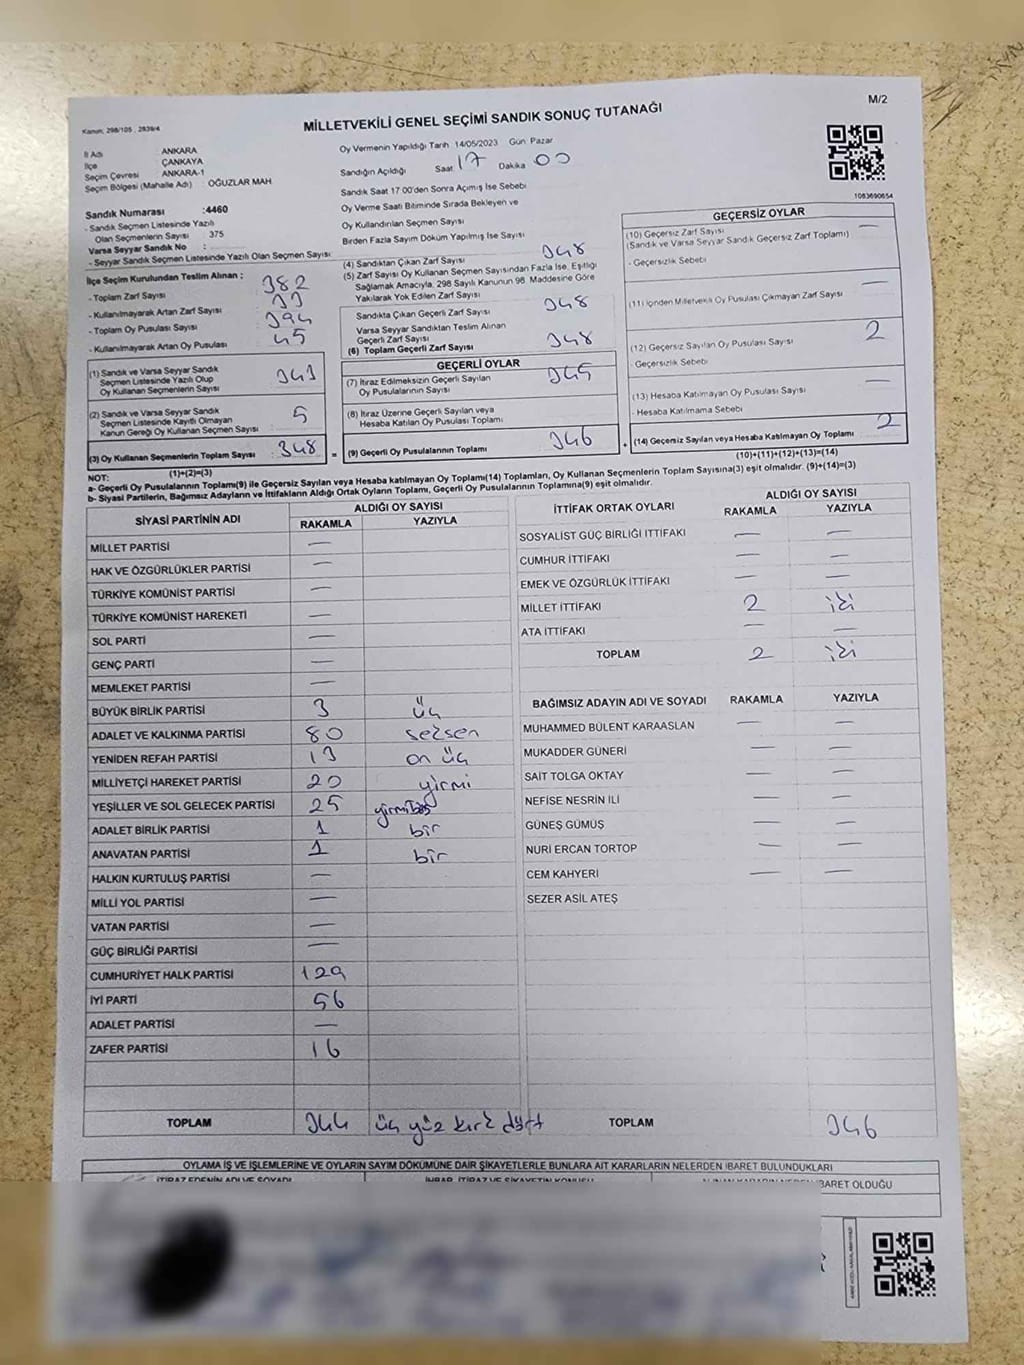 Kanun: 298/105 , 2839/4
MİLLETVEKİLİ GENEL SEÇİMİ SANDIK SONUÇ TUTANAĞI
M/2
İl Adı : ANKARA
İlçe : ÇANKAYA
Seçim Çevresi : ANKARA-1
Seçim Bölgesi (Mahalle Adı) : OĞUZLAR MAH
Oy Vermenin Yapıldığı Tarih 14/05/2023 Gün Pazar
Sandığın Açıldığı Saat 17 Dakika 00
Sandık Saat 17 00'den Sonra Açımış İse Sebebi
Oy Verme Saati Bitiminde Sırada Bekleyen ve
Oy Kullandırılan Seçmen Sayısı
Birden Fazla Sayım Döküm Yapılmış İse Sayısı
1083690654
Sandık Numarası :4460
- Sandık Seçmen Listesinde Yazılı
Olan Seçmenlerin Sayısı : 375
Varsa Seyyar Sandık No :
- Seyyar Sandık Seçmen Listesinde Yazılı Olan Seçmen Sayısı
İlçe Seçim Kurulundan Teslim Alınan :
- Toplam Zarf Sayısı : 382
- Kullanılmayarak Artan Zarf Sayısı :
- Toplam Oy Pusulası Sayısı : 394
- Kullanılmayarak Artan Oy Pusulası : 45
(1) Sandık ve Varsa Seyyar Sandık
Seçmen Listesinde Yazılı Olup
Oy Kullanan Seçmenlerin Sayısı : 343
(2) Sandık ve Varsa Seyyar Sandık
Seçmen Listesinde Kayıtlı Olmayan
Kanun Gereği Oy Kullanan Seçmen Sayısı : 5
(3) Oy Kullanan Seçmenlerin Toplam Sayısı : 348
(1)+(2)=(3)
(4) Sandıktan Çıkan Zarf Sayısı 348
(5) Zarf Sayısı Oy Kullanan Seçmen Sayısından Fazla İse, Eşitliği
Sağlamak Amacıyla, 298 Sayılı Kanunun 98. Maddesine Göre
Yakılarak Yok Edilen Zarf Sayısı
Sandıkta Çıkan Geçerli Zarf Sayısı 348
Varsa Seyyar Sandıktan Teslim Alınan
Geçerli Zarf Sayısı
(6) Toplam Geçerli Zarf Sayısı 348
GEÇERLİ OYLAR
(7) İtiraz Edilmeksizin Geçerli Sayılan
Oy Pusulalarının Sayısı 345
(8) İtiraz Üzerine Geçerli Sayılan veya
Hesaba Katılan Oy Pusulası Toplamı
= (9) Geçerli Oy Pusulalarının Toplamı 346 +
GEÇERSİZ OYLAR
(10) Geçersiz Zarf Sayısı —
(Sandık ve Varsa Seyyar Sandık Geçersiz Zarf Toplamı)
- Geçersizlik Sebebi
(11) İçinden Milletvekili Oy Pusulası Çıkmayan Zarf Sayısı —
(12) Geçersiz Sayılan Oy Pusulası Sayısı 2
- Geçersizlik Sebebi
(13) Hesaba Katılmayan Oy Pusulası Sayısı —
- Hesaba Katılmama Sebebi
(14) Geçersiz Sayılan veya Hesaba Katılmayan Oy Toplamı 2
(10)+(11)+(12)+(13)=(14)
NOT:
a- Geçerli Oy Pusulalarının Toplamı(9) ile Geçersiz Sayılan veya Hesaba katılmayan Oy Toplamı(14) Toplamları, Oy Kullanan Seçmenlerin Toplam Sayısına(3) eşit olmalıdır. (9)+(14)=(3)
b- Siyasi Partilerin, Bağımsız Adayların ve İttifakların Aldığı Ortak Oyların Toplamı, Geçerli Oy Pusulalarının Toplamına(9) eşit olmalıdır.
SİYASİ PARTİNİN ADI ALDIĞI OY SAYISI
RAKAMLA YAZIYLA
MİLLET PARTİSİ —
HAK VE ÖZGÜRLÜKLER PARTİSİ —
TÜRKİYE KOMÜNİST PARTİSİ —
TÜRKİYE KOMÜNİST HAREKETİ —
SOL PARTİ —
GENÇ PARTİ —
MEMLEKET PARTİSİ —
BÜYÜK BİRLİK PARTİSİ 3 üç
ADALET VE KALKINMA PARTİSİ 80 seksen
YENİDEN REFAH PARTİSİ 13 on üç
MİLLİYETÇİ HAREKET PARTİSİ 20 yirmi
YEŞİLLER VE SOL GELECEK PARTİSİ 25 yirmibeş
ADALET BİRLİK PARTİSİ 1 bir
ANAVATAN PARTİSİ 1 bir
HALKIN KURTULUŞ PARTİSİ —
MİLLİ YOL PARTİSİ —
VATAN PARTİSİ —
GÜÇ BİRLİĞİ PARTİSİ —
CUMHURİYET HALK PARTİSİ 129
İYİ PARTİ 56
ADALET PARTİSİ —
ZAFER PARTİSİ 16
TOPLAM 344 üç yüz kırk dört
İTTİFAK ORTAK OYLARI ALDIĞI OY SAYISI
RAKAMLA YAZIYLA
SOSYALİST GÜÇ BİRLİĞİ İTTİFAKI — —
CUMHUR İTTİFAKI — —
EMEK VE ÖZGÜRLÜK İTTİFAKI — —
MİLLET İTTİFAKI 2 iki
ATA İTTİFAKI — —
TOPLAM 2 iki
BAĞIMSIZ ADAYIN ADI VE SOYADI RAKAMLA YAZIYLA
MUHAMMED BÜLENT KARAASLAN — —
MUKADDER GÜNERİ — —
SAİT TOLGA OKTAY — —
NEFİSE NESRİN İLİ — —
GÜNEŞ GÜMÜŞ — —
NURİ ERCAN TORTOP — —
CEM KAHYERİ — —
SEZER ASİL ATEŞ
TOPLAM 346
OYLAMA İŞ VE İŞLEMLERİNE VE OYLARIN SAYIM DÖKÜMÜNE DAİR ŞİKAYETLERLE BUNLARA AİT KARARLARIN NELERDEN İBARET BULUNDUKLARI
İTİRAZ EDENİN ADI VE SOYADI İHBAR, İTİRAZ VE ŞİKAYETİN KONUSU İBARET OLDUĞU